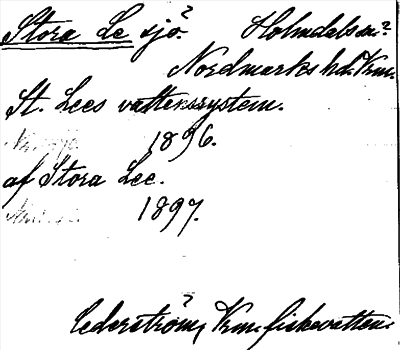 Stora Le sjö? Holmdals sn?
Nordmarks hd. Vrm.
St. Lees vattensystem.
1896.
af Stora Lee.
1897.
Cederström?, Vrm. fiskevatten.